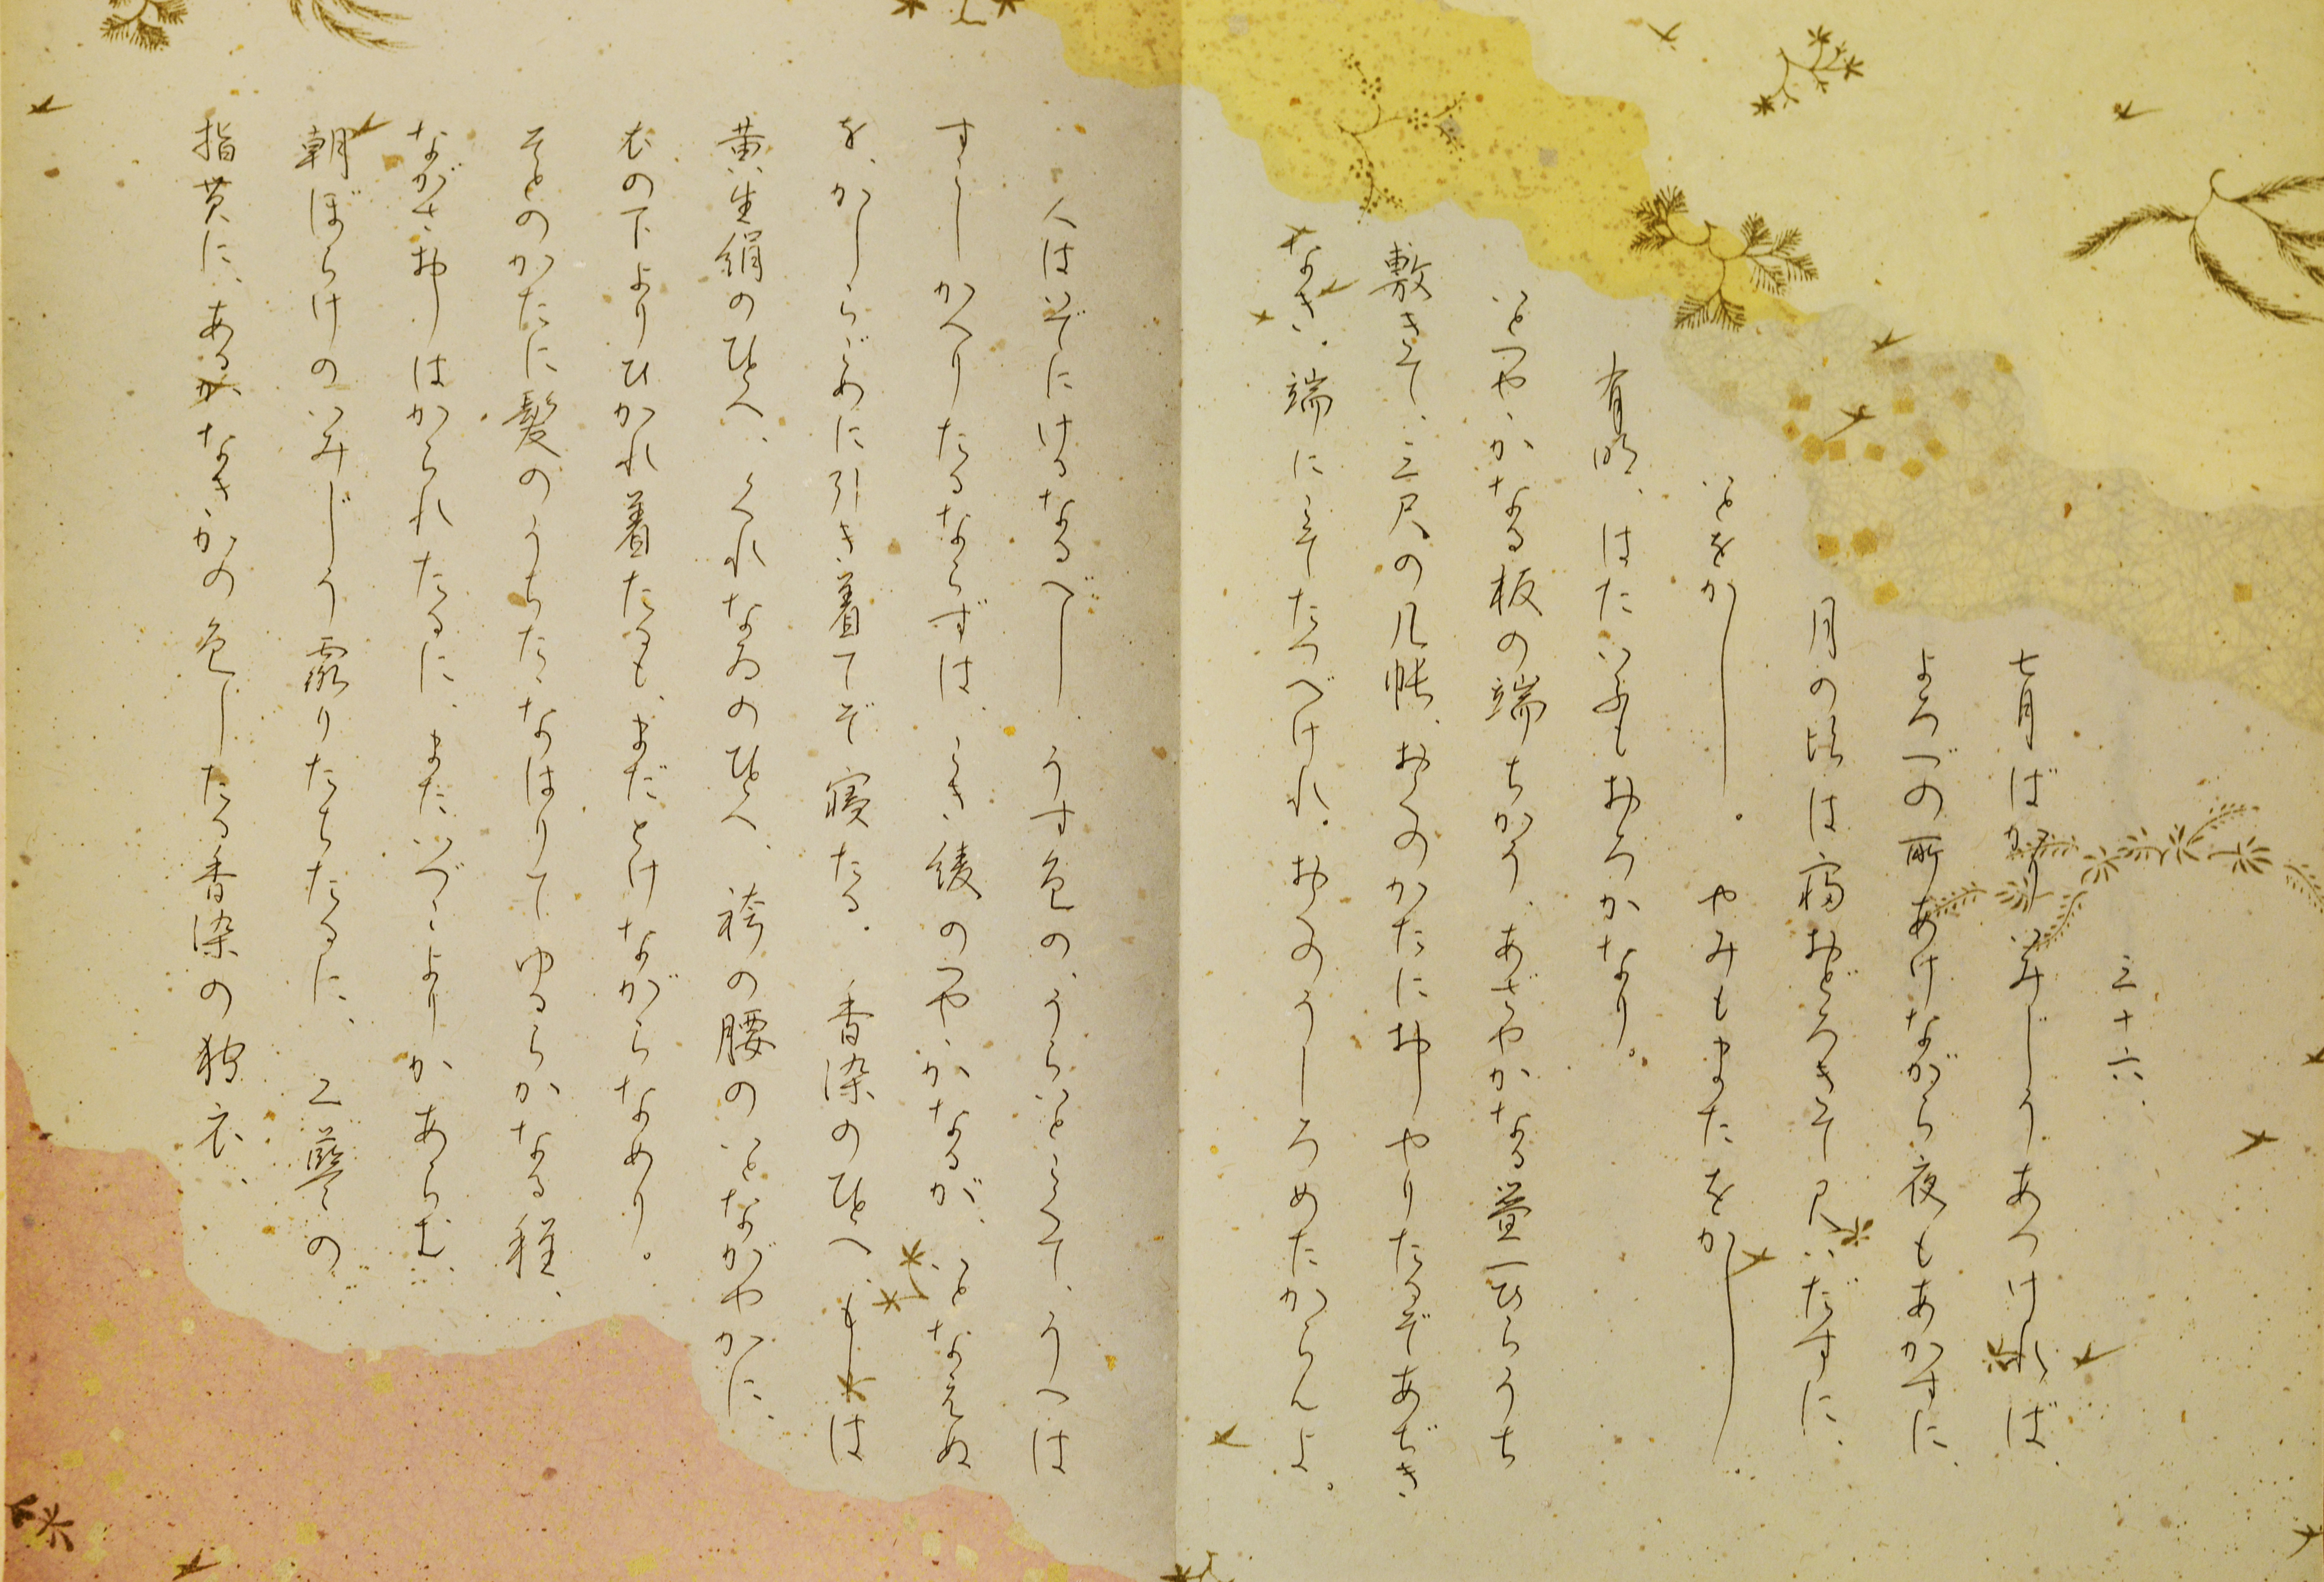 三十六
七月ばかりいみじうあつければ、
よろづの所あけながら夜もあかすに、
月の比は寝おどろきて見いだすに、
いとをかし。やみもまたをかし。
有明、はたいふもおろかなり。
いとつややかなる板の端ちかう、あざやかなる畳一ひらうち
敷きて、三尺の几帳、おくのかたにおしやりたるぞあぢき
なき。端にこそたつべけれ。おくのうしろめたからんよ。
人はいでにけるなるべし。うす色の、うらいとこくて、うへは
すこしかへりたるならずは、こき綾のつややかなるが、いとなえぬ
を、かしらごめに引き着てぞ寝たる。香染のひとへ、もしは
黄生絹のひとへ、くれなゐのひとへ、袴の腰のいとながやかに、
衣の下よりひかれ着たるも、まだとけながらなめり。
そとのかたに髪のうちたたなはりてゆるらかなる程、
ながさおしはかられたるに、またいづこよりかあらむ、
朝ぼらけのいみじう霧りたちたるに、二藍の
指貫に、あるかなきかの色したる香染の狩衣、